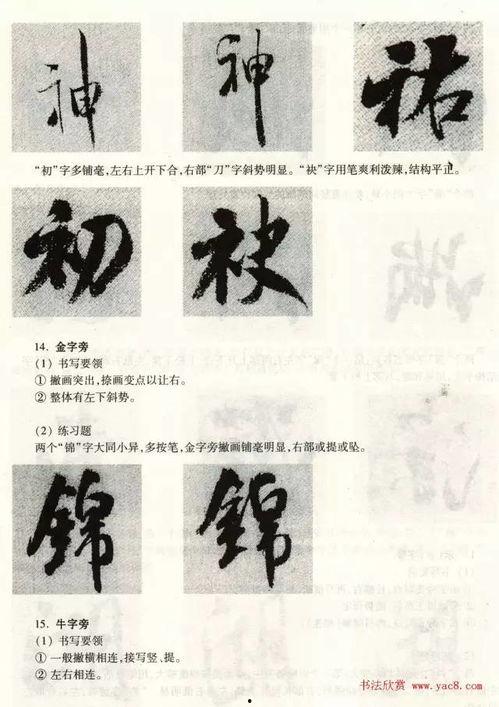 神 神 祐
“初”字多铺毫,左右上开下合,右部“刀”字斜势明显。“袂”字用笔爽利泼辣,结构平正。
初 袂
14. 金字旁
(1) 书写要领
① 撇画突出,捺画变点以让右。
② 整体有左下斜势。
(2) 练习题
两个“锦”字大同小异,多按笔,金字旁撇画铺毫明显,右部或提或坠。
錦 錦
15. 牛字旁
(1) 书写要领
① 一般撇横相连,接写竖、提。
② 左右相连。
书法欣赏 www.yac8.com